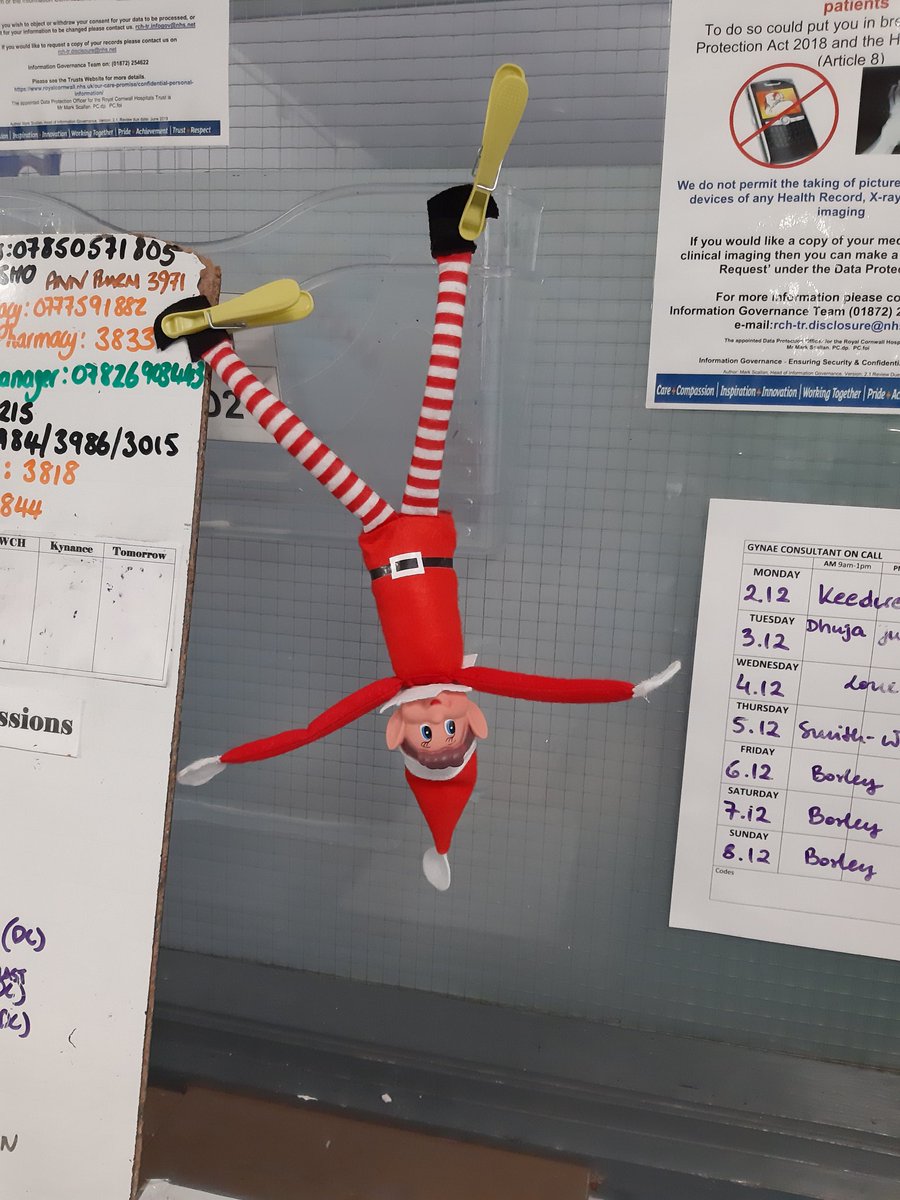 you wish to object or withdraw your consent for your data to be processed, or
for your information to be changed please contact us. rch-tr.infogov@nhs.net
if you would like to request a copy of your records please contact us on
rch-tr.disclosure@nhs.net
Information Governance Team on: (01872) 254622
Please see the Trusts Website for more details.
https://www.royalcornwall.nhs.uk/our-care-promise/confidential-personal-
information/
The appointed Data Protection Officer for the Royal Cornwall Hospitals Trust is
Mr Mark Scallan. PC.dp. PC.foi
Inspiration + Innovation | Working Together | Pride + Achievement | Trust + Respect
patients
To do so could put you in bre
Protection Act 2018 and the H
(Article 8)
We do not permit the taking of picture
devices of any Health Record, X-ray
imaging
If you would like a copy of your med
clinical imaging then you can make a
Request' under the Data Protec
For more information please co
Information Governance Team (01872) 2
e-mail:rch-tr.disclosure@nh
The appointed Data Protection Officer for the Royal Cornwall Hosp
Mr Mark Scallan. PC.dp. PC.foi
Information Governance - Ensuring Security & Confidenti
Author: Mark Scallan, Head of Information Governance. Version: 2.1 Review Due
Care + Compassion | Inspiration + Innovation | Working Together | Pride + Ac
:07850571805
SHO ANN 3971
acy: 0777591882
Pharmacy: 3833
anager: 07826908443
215
984/3986/3015
: 3818
844
02
WCH Kynance Tomorrow
ssions
(DC)
GYNAE CONSULTANT ON CALL
AM 9am-1pm
MONDAY
2.12 Keedwe
TUESDAY
3.12 Dhuja
WEDNESDAY
4.12
THURSDAY
5.12 Smith-W
FRIDAY
6.12 Borley
SATURDAY
7.12 Borley
SUNDAY
8.12 Borley
Codes
N